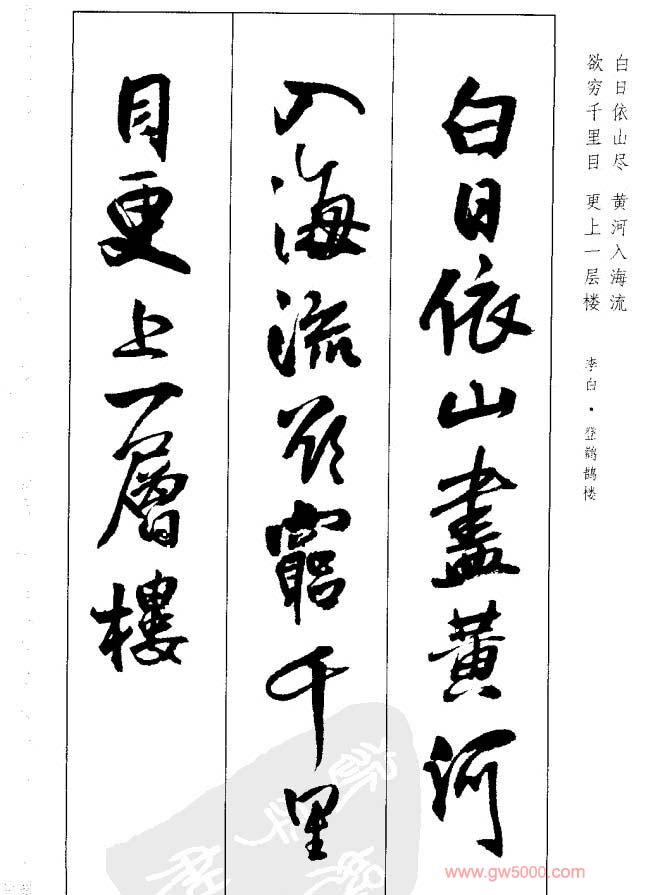 白日依山尽 黄河入海流
欲穷千里目 更上一层楼
李白·登鹳鹊楼
白日依山盡黄河
入海流欲窮千里
目更上一層樓
www.gw5000.com